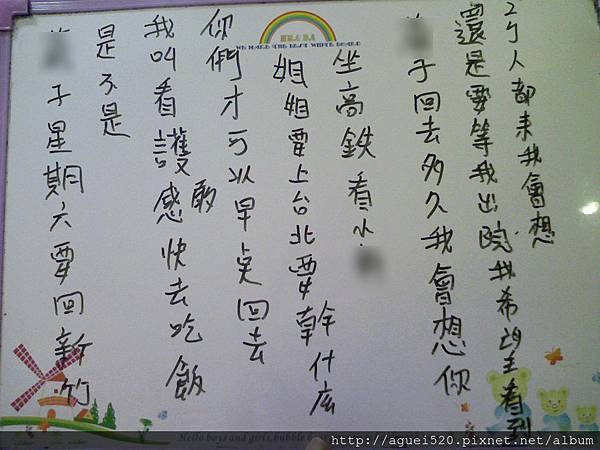 WE MAKE THE BEST WHITE BOARD
子星期六要回新竹
是不是
我叫看護感敢快去吃飯
你們才可以早点回去
姐姐要上台北要幹什広
坐高鉄看小
子回去多久我會想你
還是要等我出院我希望看到
2个人都来我會想
Hello boys and girls, bubble
http://aguei520.pixnet.net/album